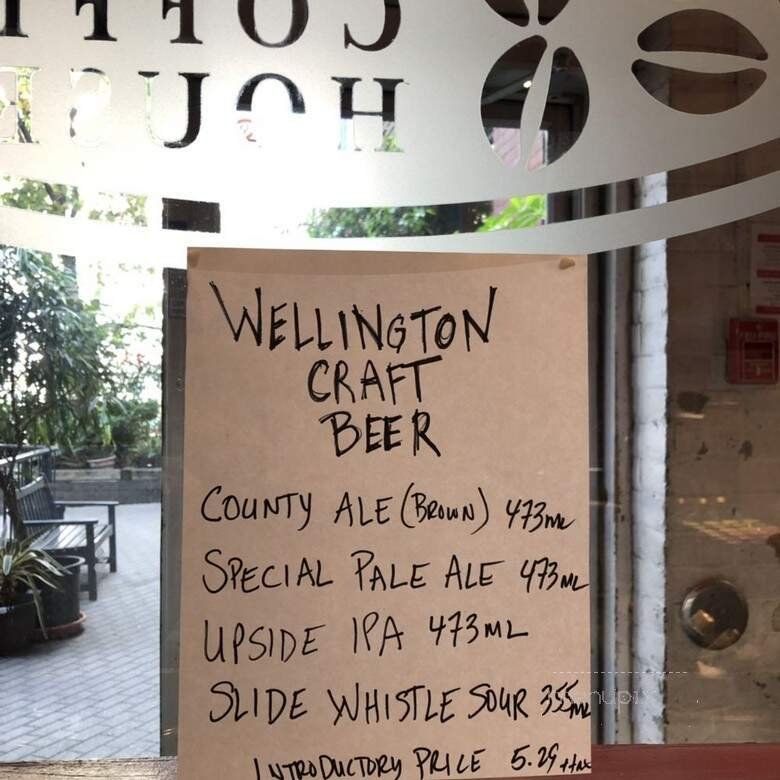 COFFEE
HOUSE
WELLINGTON
CRAFT
BEER
COUNTY ALE (BROWN) 473ML
SPECIAL PALE ALE 473ML
UPSIDE IPA 473ML
SLIDE WHISTLE SOUR 355ML
INTRODUCTORY PRICE 5.29 +tax